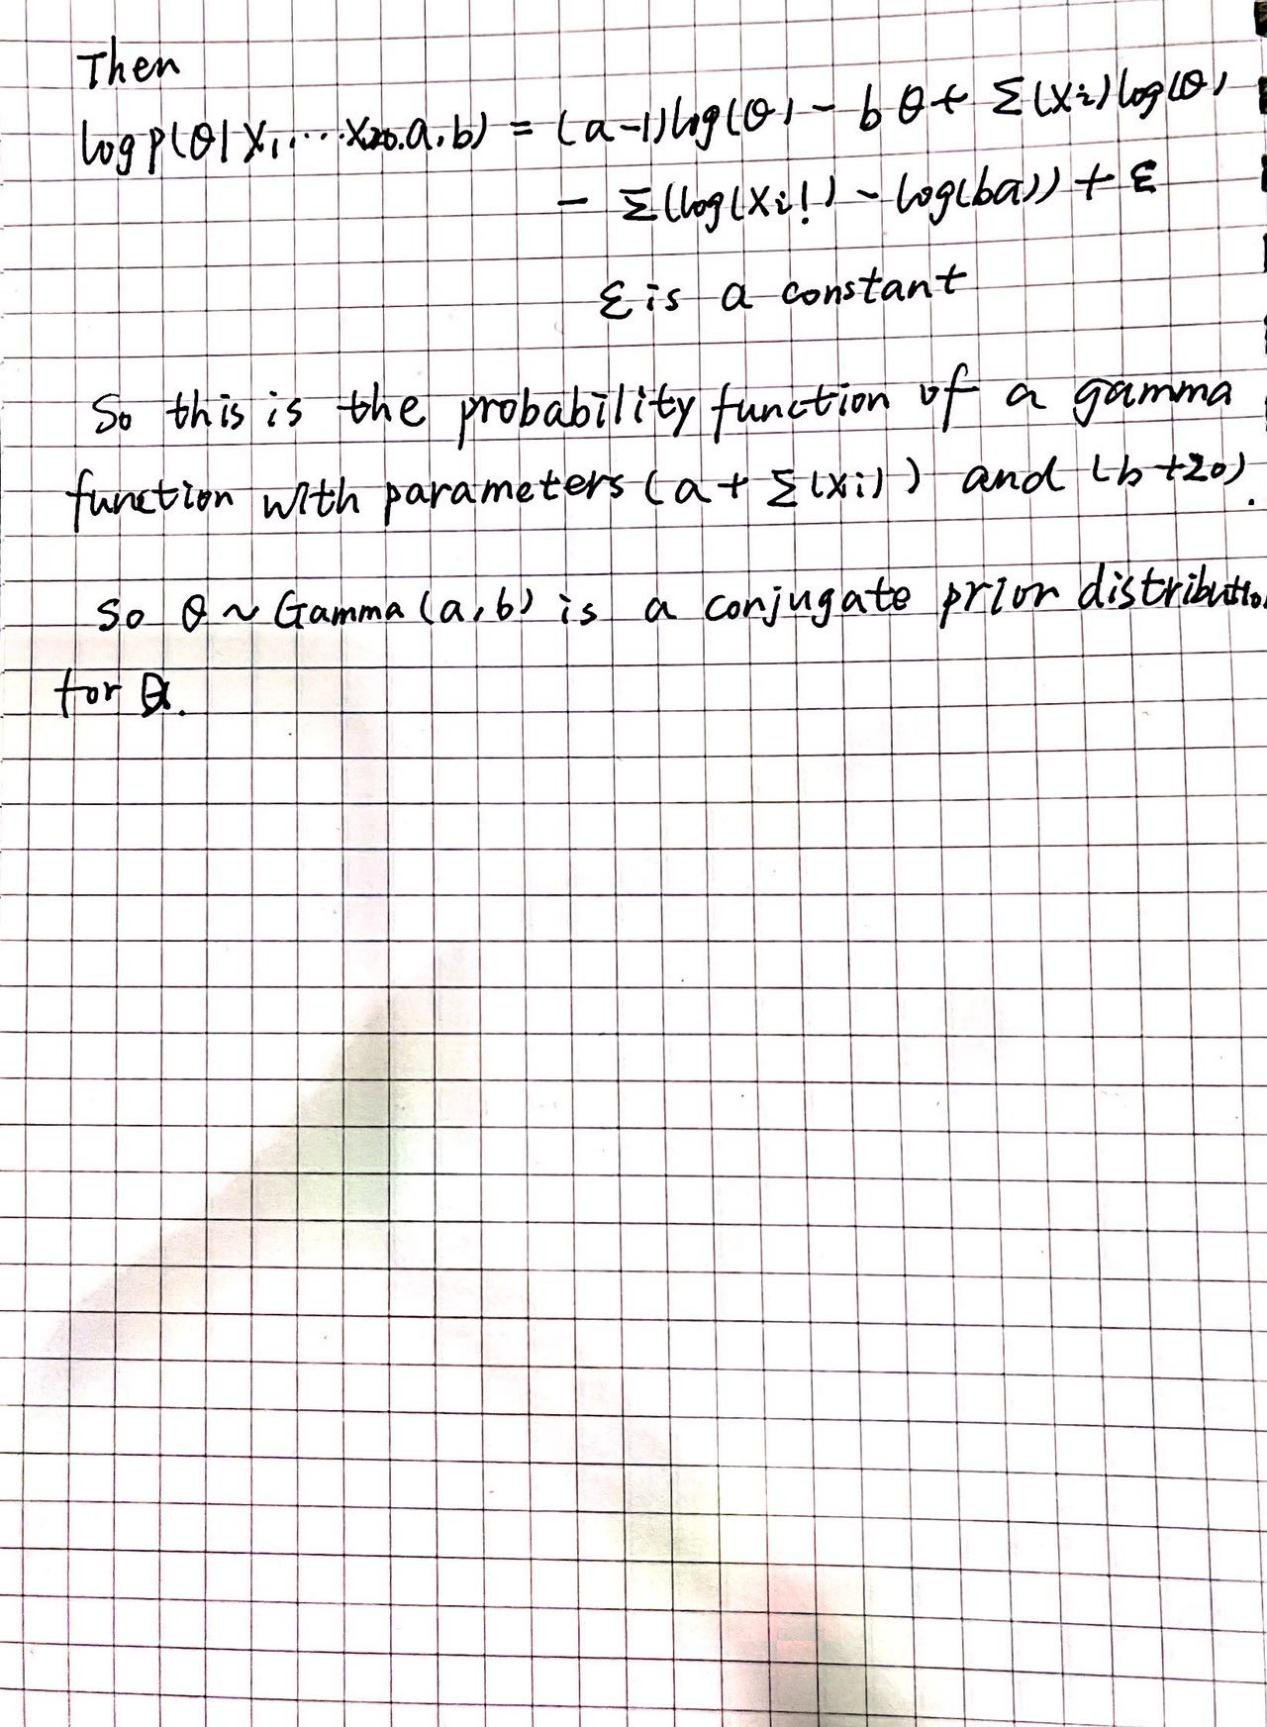 Then
log p(θ|X1,...X20.a,b) = (a-1)log(θ) - bθ + Σ(Xi)log(θ)
- Σ(log(Xi!) - log(ba)) + ε
ε is a constant
So this is the probability function of a gamma
function with parameters (a + Σ(xi)) and (b+20).
So θ ~ Gamma (a,b) is a conjugate prior distributio
for θ.